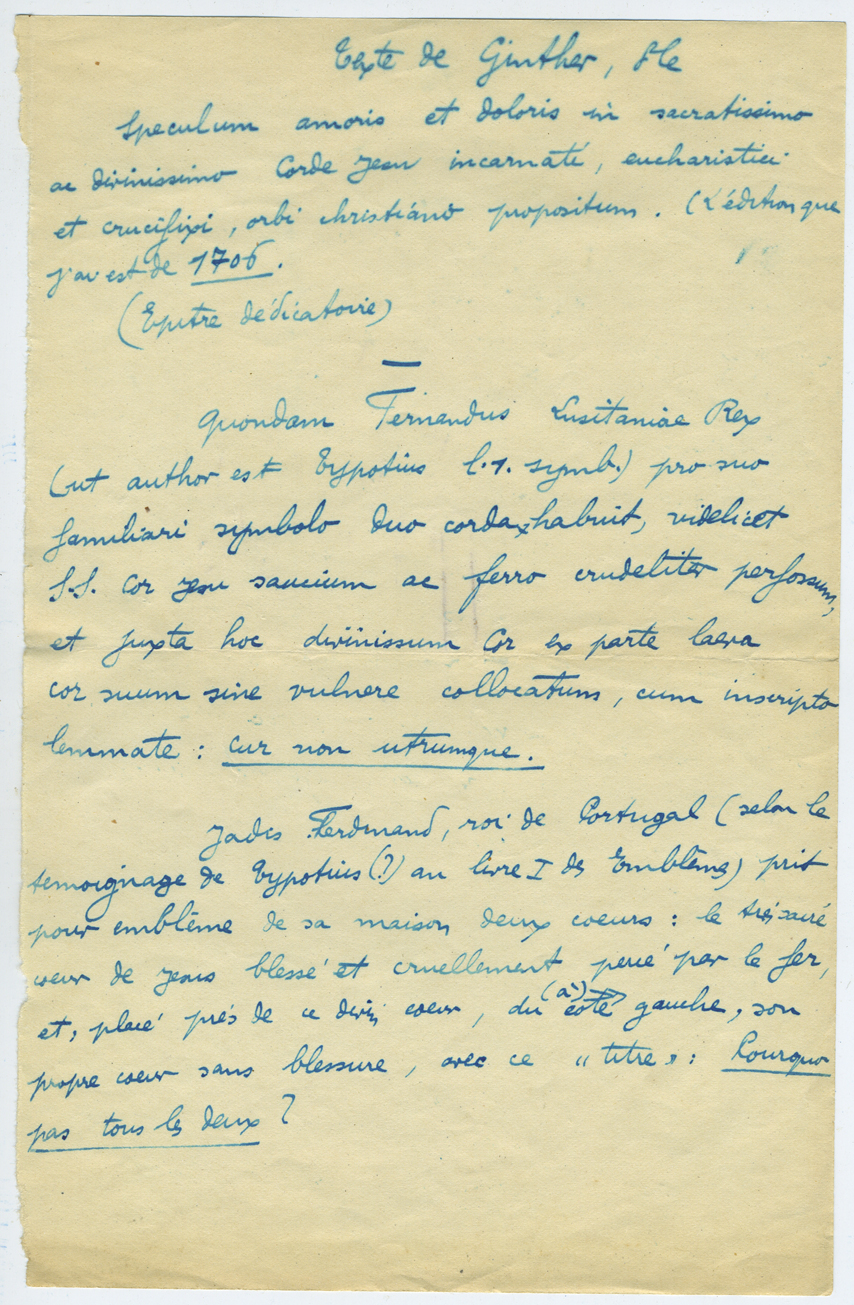 Texte de Ginther,
Speculum amoris et doloris in sacratissimo
ac divinissimo Corde Jesu incarnati, eucharistici
et crucifixi, orbi christiano propositum. (L'édition que
j'ai est de 1706.
(Epitre dédicatoire)
—
Quondam Fernandus Lusitaniae Rex
(ut author est Typotius l.1. symb.) pro suo
familiari symbolo duo corda habuit, videlicet
S.S. Cor Jesu saucium ac ferro crudeliter perfossum,
et juxta hoc divinissum Cor ex parte laeva
cor suum sine vulnere collocatum, cum inscripto
lemmate : cur non utrumque.
Jadis Ferdinand, roi de Portugal (selon le
temoignage de Typotius (?) au livre I des Emblêmes) prit
pour emblême de sa maison deux coeurs : le très sacré
coeur de Jesus blessé et cruellement percé par le fer,
et, placé près de ce divin coeur, du (à) côté gauche, son
propre coeur sans blessure, avec ce "titre" : Pourquoi
pas tous les deux ?